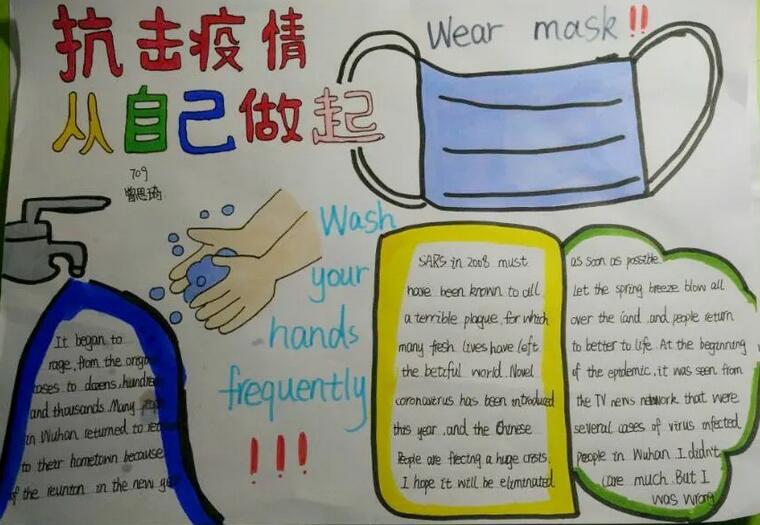 抗击疫情
从自己做起
Wear mask!!
709
曾思琦
Wash
your
hands
frequently
!!!
SARS in 2008 must
have been known to all
a terrible plague, for which
many fresh lives have left
the betiful world. Novel
coronavirus has been introduced
this year, and the Chinese
People are frecting a huge crisis.
I hope it will be eliminated
as soon as possible.
Let the spring breeze blow all
over the land, and people return
to better to life. At the beginning
of the epidemic, it was seen from
the TV news network that were
several cases of virus infected
people in Wuhan. I didn't
care much. But I
was wrong
It began to
rage, from the
cases to dozens, hundreds
and thousands. Many
in Wuhan returned to
to their hometown because
of the reunion in the new